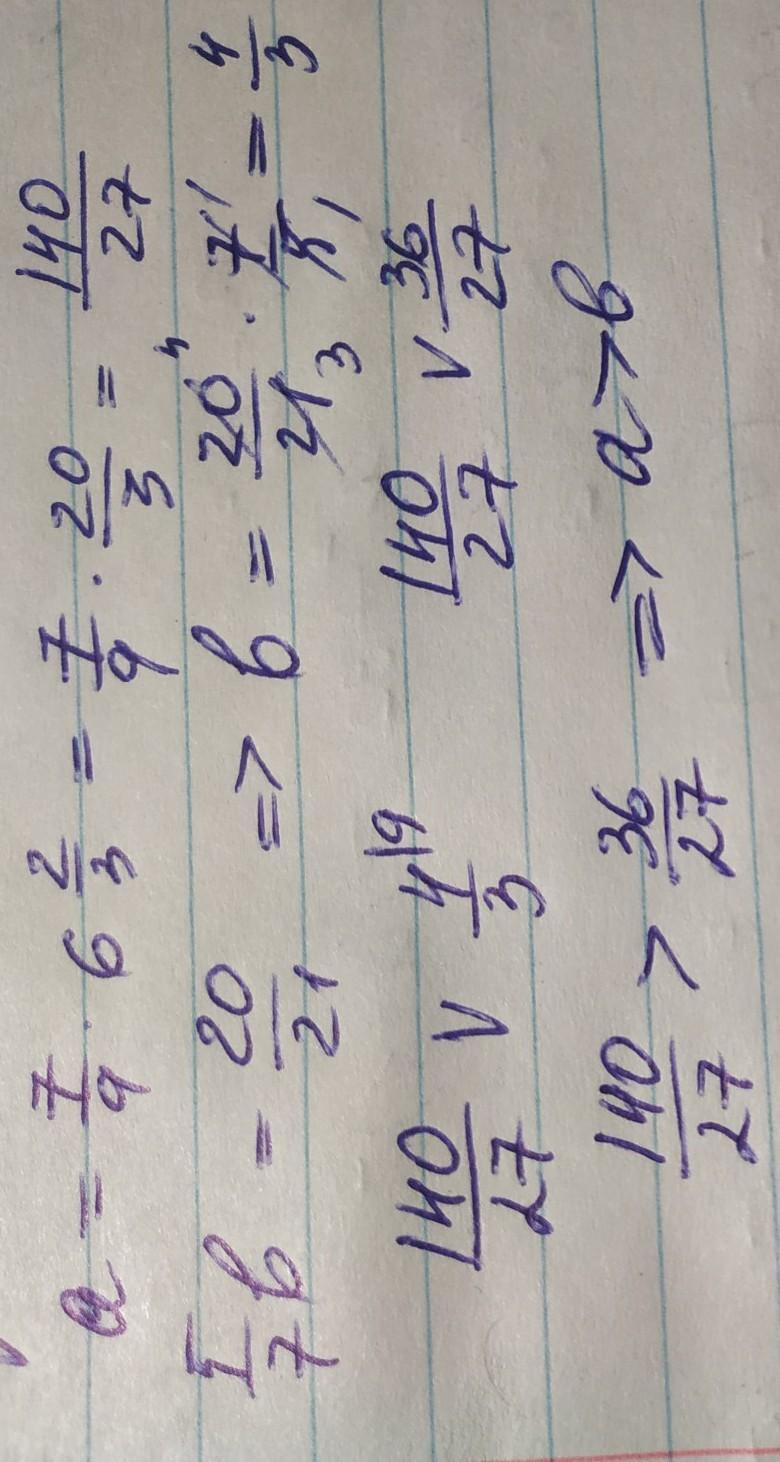 a = 7/9 · 6 2/3 = 7/9 · 20/3 = 140/27
5/7 b = 20/21 => b = 20⁴/21₃ · 7¹/5₁ = 4/3
140/27 v 4|9/3 140/27 v 36/27
140/27 > 36/27 => a > b